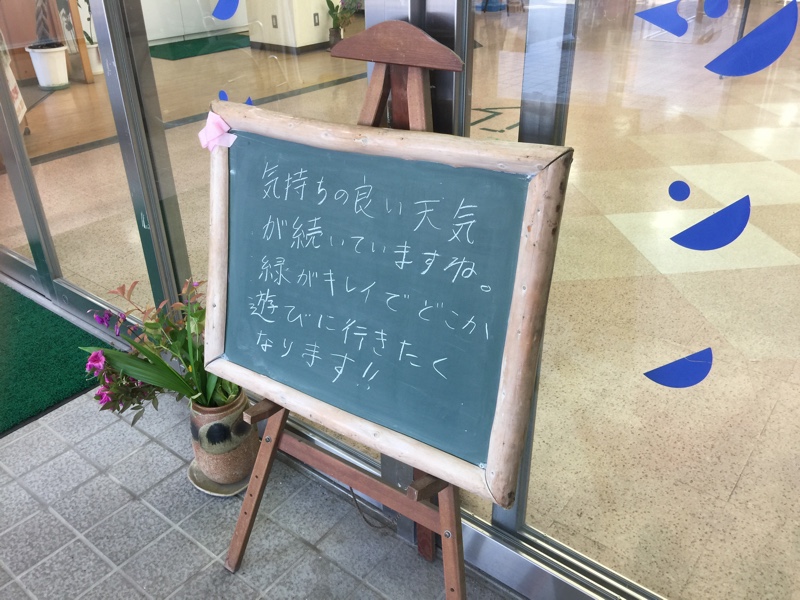 気持ちの良い天気
が続いていますね。
緑がキレイでどこか
遊びに行きたく
なります!!